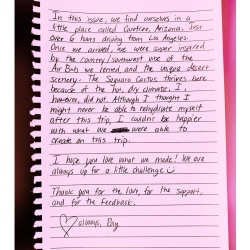 In this issue, we find ourselves in a
little place called Carefree, Arizona. Just
over 6 hours driving from Los Angeles.
Once we arrived, we were super inspired
by the country/southwest vibe of the
Air Bnb we rented, and the unique desert
scenery. The Saguaro Cactus thrives here
because of the hot, dry climate. I,
however, did not. Although I thought I
might never be able to rehydrate myself
after this trip, I couldn't be happier
with what we were able to
create on this trip.
I hope you love what we made! We are
always up for a little challenge
Thank you for the love, for the support,
and for the feedback.
always, Ray